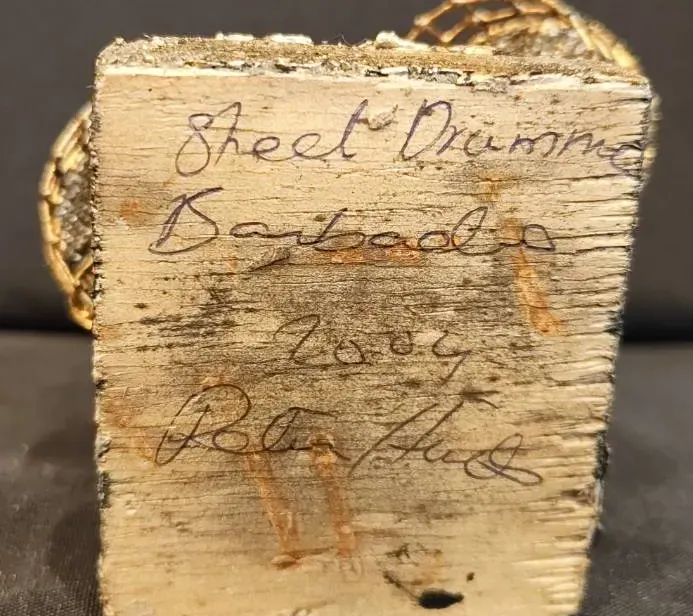 Steel Drummer
Barbados
2004
Peter